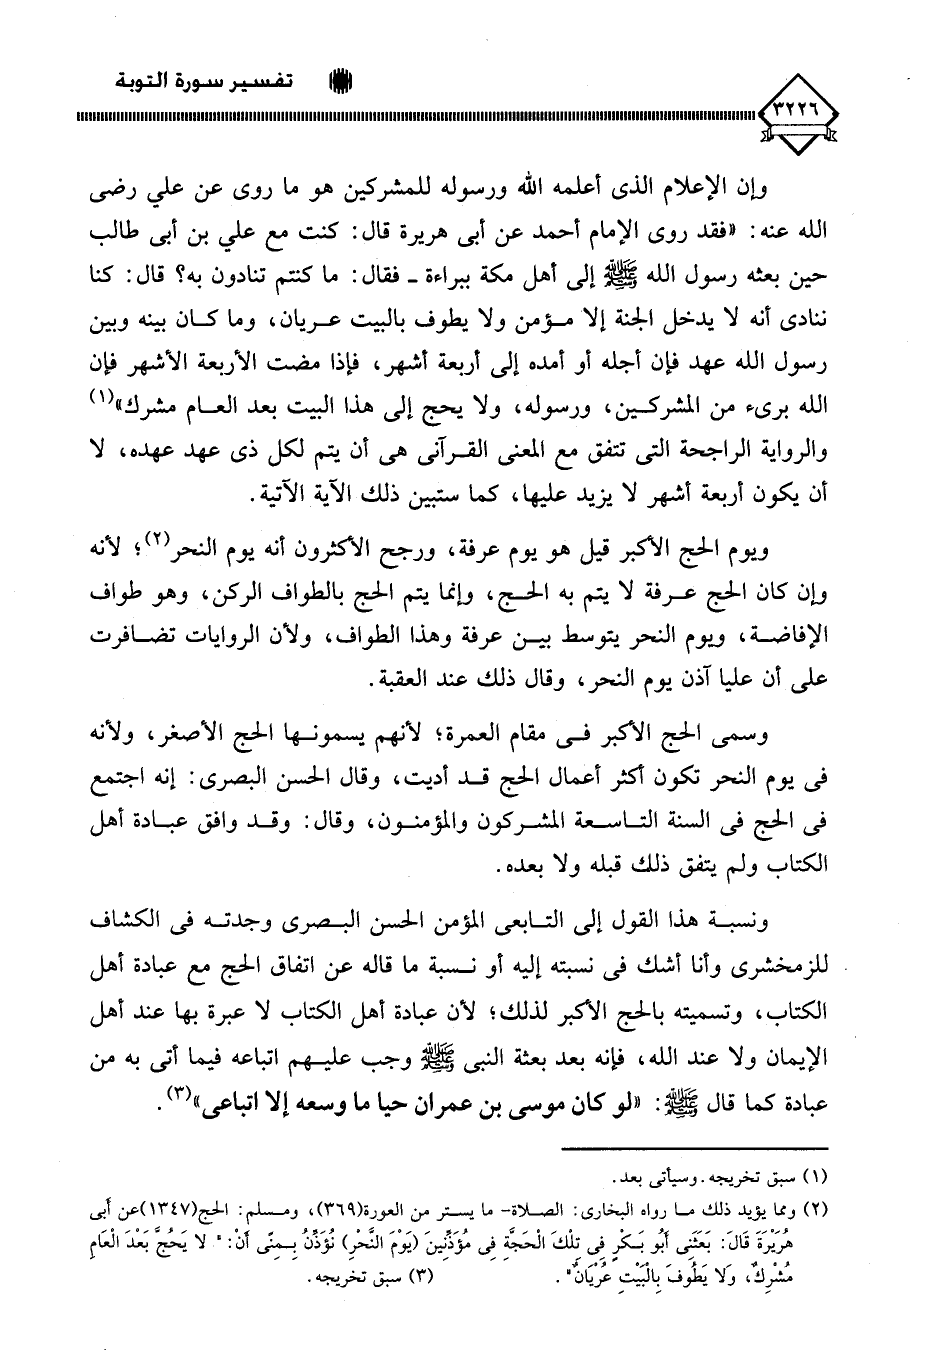 تفسير سورة التوبة
٣٢٢٦
وإن الإعلام الذى أعلمه الله ورسوله للمشركين هو ما روى عن علي رضى
الله عنه: «فقد روى الإمام أحمد عن أبى هريرة قال: كنت مع علي بن أبى طالب
حين بعثه رسول الله ﷺ إلى أهل مكة ببراءة ـ فقال: ما كنتم تنادون به؟ قال: كنا
ننادى أنه لا يدخل الجنة إلا مـؤمن ولا يطوف بالبيت عـريان، وما كـان بينه وبين
رسول الله عهد فإن أجله أو أمده إلى أربعة أشهر، فإذا مضت الأربعة الأشهر فإن
الله برىء من المشركـين، ورسوله، ولا يحج إلى هذا البيت بعد العـام مشرك»(١)
والرواية الراجحة التى تتفق مع المعنى القـرآنى هى أن يتم لكل ذى عهد عهده، لا
أن يكون أربعة أشهر لا يزيد عليها، كما ستبين ذلك الآية الآتية.
ويوم الحج الأكبر قيل هو يوم عرفة، ورجح الأكثرون أنه يوم النحر(٢)؛ لأنه
وإن كان الحج عـرفة لا يتم به الحـج، وإنما يتم الحج بالطواف الركن، وهو طواف
الإفاضـة، ويوم النحر يتوسط بيـن عرفة وهذا الطواف، ولأن الروايات تضـافرت
على أن عليا آذن يوم النحر، وقال ذلك عند العقبة.
وسمى الحج الأكبر فـى مقام العمرة؛ لأنهم يسمونـها الحج الأصغر، ولأنه
فى يوم النحر تكون أكثر أعمال الحج قـد أديت، وقال الحسن البصرى: إنه اجتمع
فى الحج فى السنة التـاسـعة المشـركون والمؤمنـون، وقال: وقـد وافق عبـادة أهل
الكتاب ولم يتفق ذلك قبله ولا بعده.
ونسبـة هذا القول إلى التـابعى المؤمن الحسن البـصرى وجدتـه فى الكشاف
للزمخشرى وأنا أشك فى نسبته إليه أو نـسبة ما قاله عن اتفاق الحج مع عبادة أهل
الكتاب، وتسميته بالحج الأكبر لذلك؛ لأن عبادة أهل الكتاب لا عبرة بها عند أهل
الإيمان ولا عند الله، فإنه بعد بعثة النبى ﷺ وجب عليـهم اتباعه فيما أتى به من
عبادة كما قال ﷺ: «لو كان موسى بن عمران حيا ما وسعه إلا اتباعى»(٣).
(١) سبق تخريجه. وسيأتى بعد.
(٢) ومما يؤيد ذلك مـا رواه البخارى: الصـلاة- ما يستـر من العورة(٣٦٩)، ومـسلم: الحج(١٣٤٧)عن أَبى
هُرَيْرَةَ قَالَ: بَعَثَنِى أَبُو بَـكْرٍ فِى تِلْكَ الْحَجَّةِ فِى مُؤَذِّنِينَ (يَوْمَ النَّحْرِ) نُؤَذِّنُ بِـمِنًى أَنْ: " لا يَحُجَّ بَعْدَ الْعَامِ
مُشْرِكٌ، وَلا يَطُوفَ بِالْبَيْتِ عُرْيَانٌ".
(٣) سبق تخريجه.